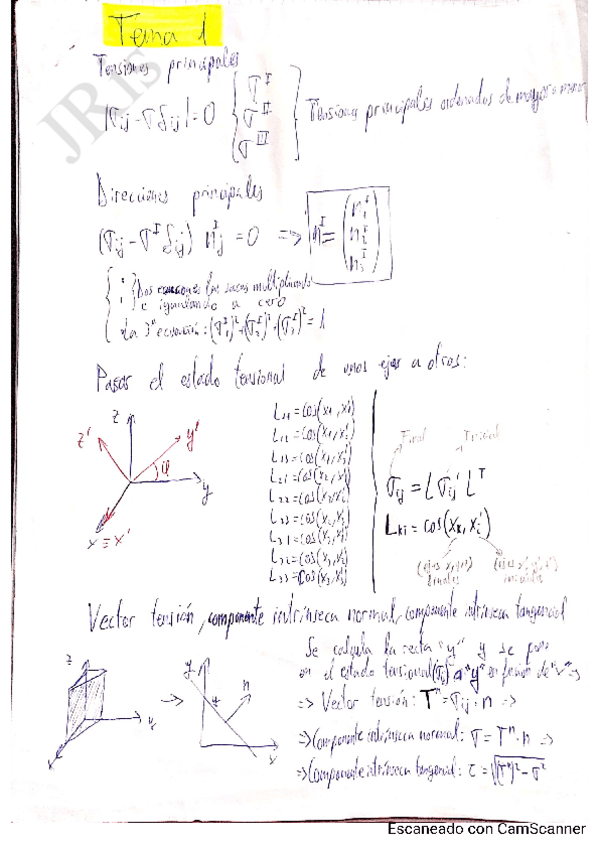 Tema 1
JRis
Tensiones principales
|σij - σδij| = 0 { σ^I σ^II σ^III } Tensiones principales ordenadas de mayor a menor
Direcciones principales
(σij - σ^I δij) n^I_j = 0 => n^I = (n^I_1 n^I_2 n^I_3)
Dos ecuaciones las sacas multiplicando
e igualando a cero
La 3ª ecuación: (σ^I_1)²+(σ^I_2)²+(σ^I_3)² = 1
Pasar el estado tensional de unos ejes a otros:
z
z'
y'
φ
y
x ≡ x'
L11 = cos(x1,x1')
L12 = cos(x1,x2')
L13 = cos(x1,x3')
L21 = cos(x2,x1')
L22 = cos(x2,x2')
L23 = cos(x2,x3')
L31 = cos(x3,x1')
L32 = cos(x3,x2')
L33 = cos(x3,x3')
Final Inicial
σij = L σij' L^T
Lki = cos(xk,xi')
finales iniciales
Vector tensión, componente intrínseca normal, componente intrínseca tangencial
z
y
y
n
x
Se calcula la recta "y" y se pone
en el estado tensional (σij) a "y" en función de "x"
=> Vector tensión: T^n = σij · n =>
=> Componente intrínseca normal: σ = T^n · n =>
=> Componente intrínseca tangencial: τ = √((T^n)² - σ²)
Escaneado con CamScanner